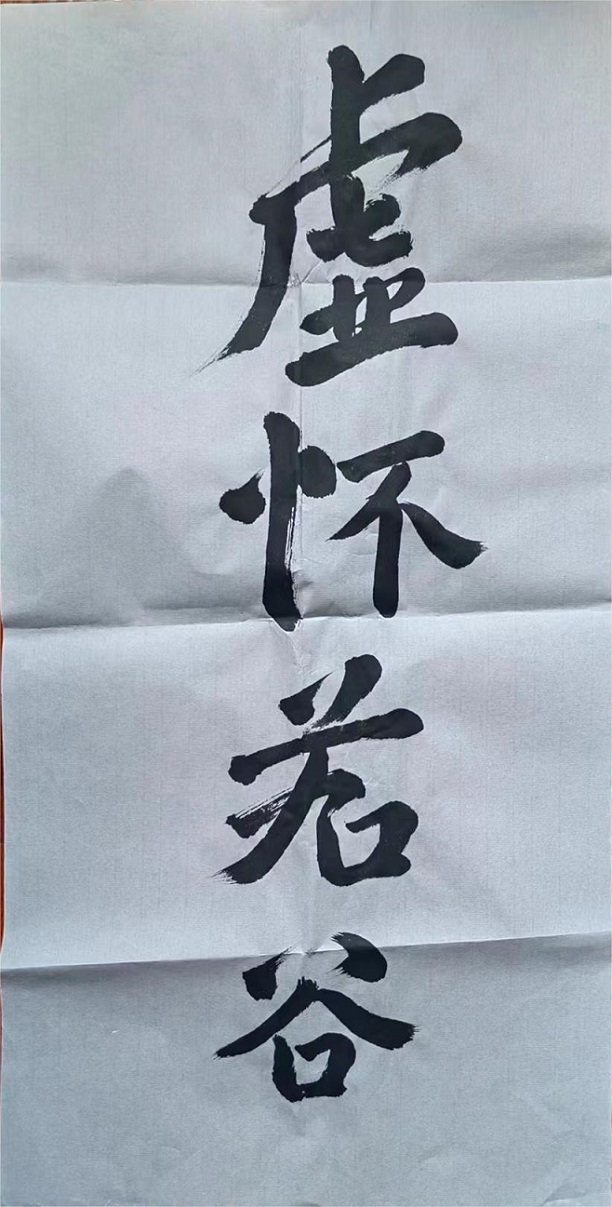 虚怀若谷